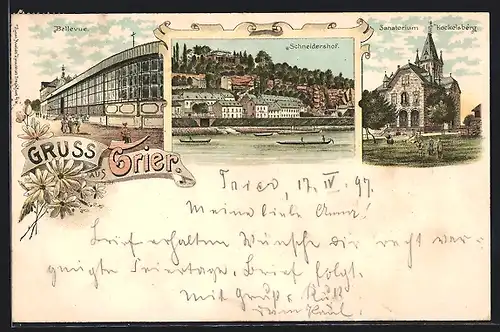 Bellevue.
Schneidershof.
Sanatorium Kockelsberg
GRUSS
AUS
Trier.
Trier, 17. IV. 97
Meine liebe Anna!
Brief erhalten Wünsche dir recht ver-
gnügte Feiertage. Brief folgt.
Mit Gruß u. Kuß
dein Paul.